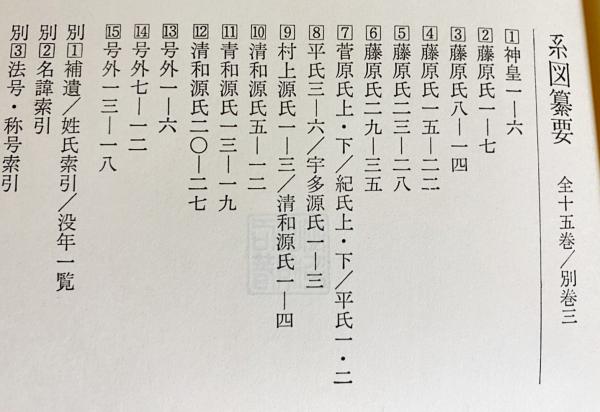 系図纂要 全十五巻/別巻三
1神皇一—六
2藤原氏一—七
3藤原氏八—一四
4藤原氏一五—二二
5藤原氏二三—二八
6藤原氏二九—三五
7菅原氏上・下/紀氏上・下/平氏一・二
8平氏三—六/宇多源氏一—三
9村上源氏一—三/清和源氏一—四
10清和源氏五—一二
11青和源氏一三—一九
12清和源氏二〇—二七
13号外一—六
14号外七—一二
15号外一三—一八
別1補遺/姓氏索引/没年一覧
別2名諱索引
別3法号・称号索引